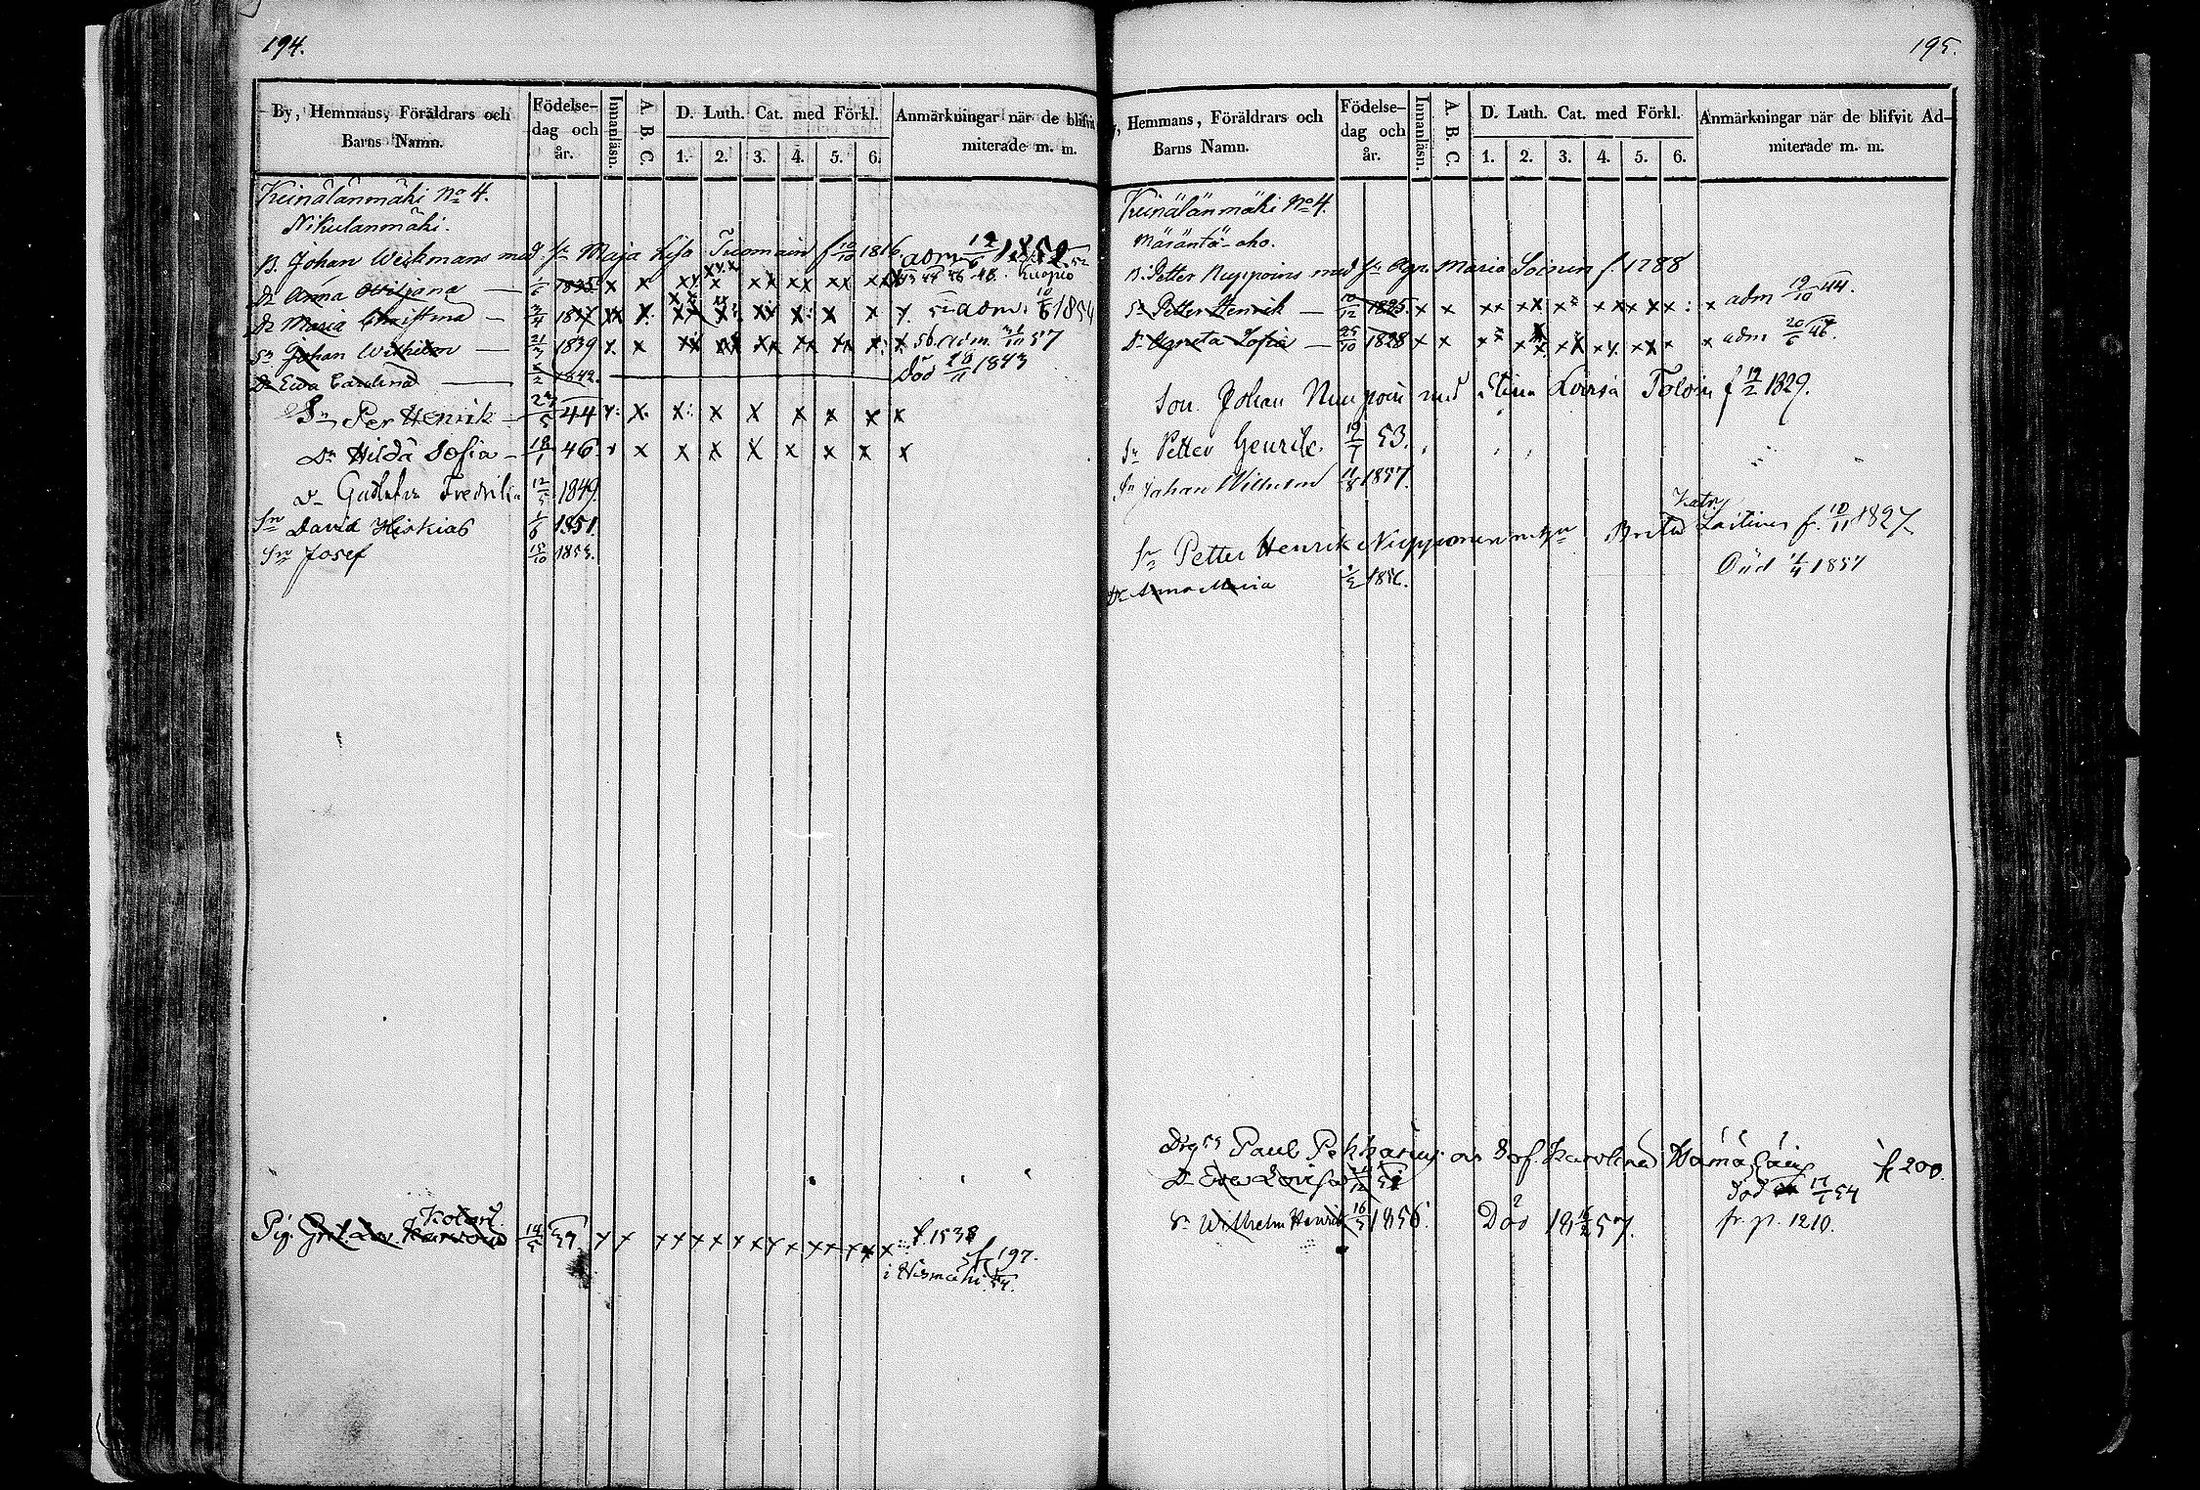 194.
By, Hemmans, Föräldrars och Barns Namn. Födelse-dag och år. Innanläsn. A. B. C. D. Luth. Cat. med Förkl. 1. 2. 3. 4. 5. 6. Anmärkningar när de blifvit miterade m. m.
Keinälänmäki No 4.
Nikulanmäki.
B. Johan Weckmans med h:u Maja Lisa Tuomain f 10/10 1816
Dr Anna 1835 x x xx xx xx xx xx adm 1852 Kuopio
Dr Maria Christina 3/4 1837 xx x x x x adm. 10/6 1854
Sn Johan Wilhelm 21/3 1839 x x xx xx xx xx x 56 adm. 57
Dr Ewa Carolina 1842. Död 1843
Sn Per Henrik 29/5 44 x: x x: x x x x x x
Dr Hilda Sofia 18/1 46 x x x x x x x x
Dr Fredrika 12/5 1849
Sn David Hiskias 1/6 1851
Sn Josef 15/10 1853.
Pig. Kolari 14/5 x x x x x x x x x x x x x f. 1538
197.
i
195.
Hemmans, Föräldrars och Barns Namn. Födelse-dag och år. Innanläsn. A. B. C. D. Luth. Cat. med Förkl. 1. 2. 3. 4. 5. 6. Anmärkningar när de blifvit Ad-miterade m. m.
Keinälänmäki No 4.
Märäntä-aho.
B. Petter Nuppoins med h:u Agn. Maria Soinin f. 1788
Sn Petter Henrik 10/12 1825. x x xx xx x xx xx x: x adm 19/10 44.
Dr Agneta Sofia 25/10 1828 x x x xx xx xx xx x x adm 20/6 46.
Son Johan Nuupoin med Stina Lovisa Tolvin f 19/2 1829.
Sn Petter Henrik. 19/7 53.
Sn Johan Wilhelm 11/8 1857.
Katr.
Sn Petter Henrik Nupponen Brita Laitinen f. 10/11 1827
Dr Anna Maria 1856. Död 1/4 1857
Paul Pekkarins Sof. Karolina Hämäläin f 200.
Dr Eva Lovisa Död 17/1 54
Sn Wilhelm Henrik 16/3 1856. Död 18 16/2 57. fr. p. 1210.